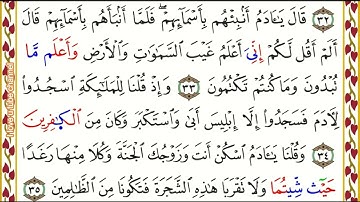 ٣٢ قَالَ يَـٰٓـَٔادَمُ أَنۢبِئْهُم بِأَسْمَآئِهِمْ ۖ فَلَمَّآ أَنۢبَأَهُم بِأَسْمَآئِهِمْ قَالَ
أَلَمْ أَقُل لَّكُمْ إِنِّىَ أَعْلَمُ غَيْبَ ٱلسَّمَـٰوَٰتِ وَٱلْأَرْضِ وَأَعْلَم مَّا
تُبْدُونَ وَمَا كُنتُمْ تَكْتُمُونَ ٣٣ وَإِذْ قُلْنَا لِلْمَلَـٰٓئِكَةِ ٱسْجُدُوا۟
لِـَٔادَمَ فَسَجَدُوٓا۟ إِلَّآ إِبْلِيسَ أَبَىٰ وَٱسْتَكْبَرَ وَكَانَ مِنَ ٱلْكَـٰفِرِينَ
٣٤ وَقُلْنَا يَـٰٓـَٔادَمُ ٱسْكُنْ أَنتَ وَزَوْجُكَ ٱلْجَنَّةَ وَكُلَا مِنْهَا رَغَدًا
حَيْث شِّيتُمَا وَلَا تَقْرَبَا هَـٰذِهِ ٱلشَّجَرَةَ فَتَكُونَا مِنَ ٱلظَّـٰلِمِينَ ٣٥